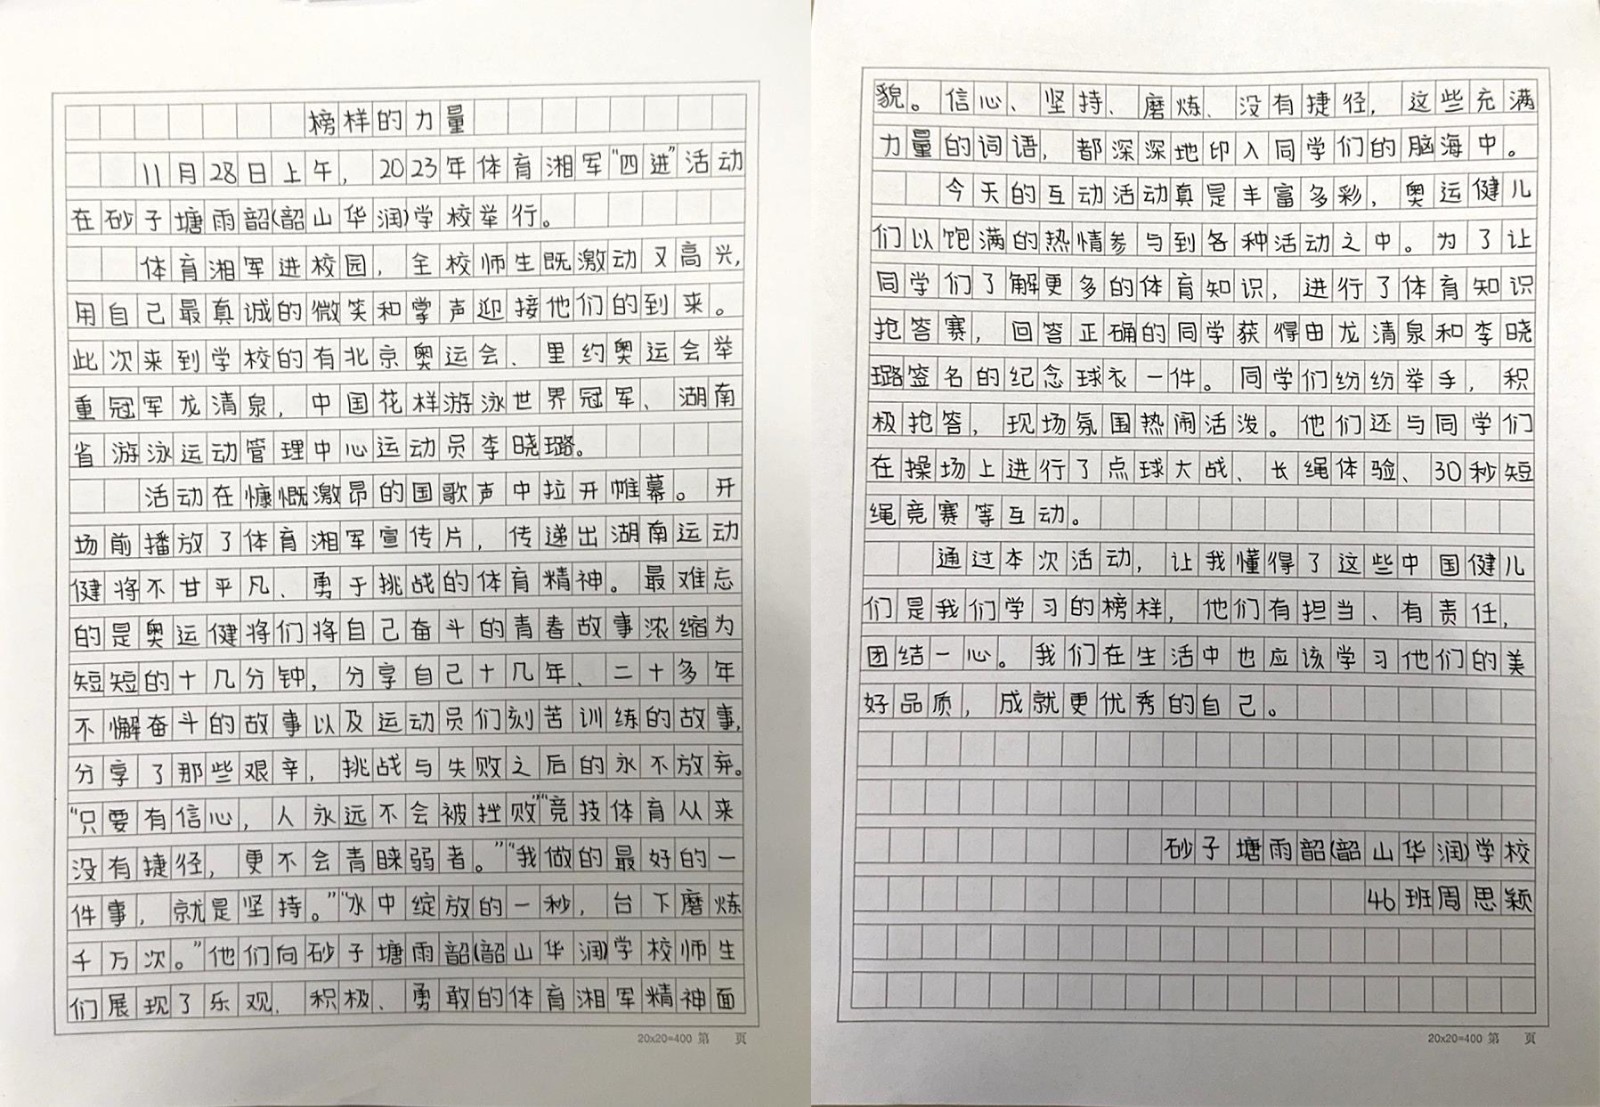 榜样的力量
11月28日上午，2023年体育湘军“四进”活动
在砂子塘雨韶(韶山华润)学校举行。
体育湘军进校园，全校师生既激动又高兴，
用自己最真诚的微笑和掌声迎接他们的到来。
此次来到学校的有北京奥运会、里约奥运会举
重冠军龙清泉，中国花样游泳世界冠军、湖南
省游泳运动管理中心运动员李晓璐。
活动在慷慨激昂的国歌声中拉开帷幕。开
场前播放了体育湘军宣传片，传递出湖南运动
健将不甘平凡、勇于挑战的体育精神。最难忘
的是奥运健将们将自己奋斗的青春故事浓缩为
短短的十几分钟，分享自己十几年、二十多年
不懈奋斗的故事以及运动员们刻苦训练的故事，
分享了那些艰辛，挑战与失败之后的永不放弃。
“只要有信心，人永远不会被挫败”“竞技体育从来
没有捷径，更不会青睐弱者。”“我做的最好的一
件事，就是坚持。”“水中绽放的一秒，台下磨炼
千万次。”他们向砂子塘雨韶(韶山华润)学校师生
们展现了乐观、积极、勇敢的体育湘军精神面
20x20=400 第 页
貌。信心、坚持、磨炼、没有捷径，这些充满
力量的词语，都深深地印入同学们的脑海中。
今天的互动活动真是丰富多彩，奥运健儿
们以饱满的热情参与到各种活动之中。为了让
同学们了解更多的体育知识，进行了体育知识
抢答赛，回答正确的同学获得由龙清泉和李晓
璐签名的纪念球衣一件。同学们纷纷举手，积
极抢答，现场氛围热闹活泼。他们还与同学们
在操场上进行了点球大战、长绳体验、30秒短
绳竞赛等互动。
通过本次活动，让我懂得了这些中国健儿
们是我们学习的榜样，他们有担当、有责任，
团结一心。我们在生活中也应该学习他们的美
好品质，成就更优秀的自己。
砂子塘雨韶(韶山华润)学校
46班周思颖
20x20=400 第 页